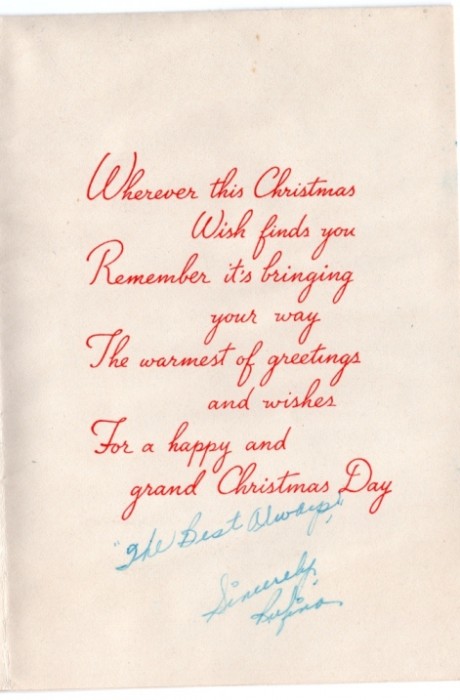 Wherever this Christmas
Wish finds you
Remember it's bringing
your way
The warmest of greetings
and wishes
For a happy and
grand Christmas Day
"The Best Always"
Sincerely,
Rufino